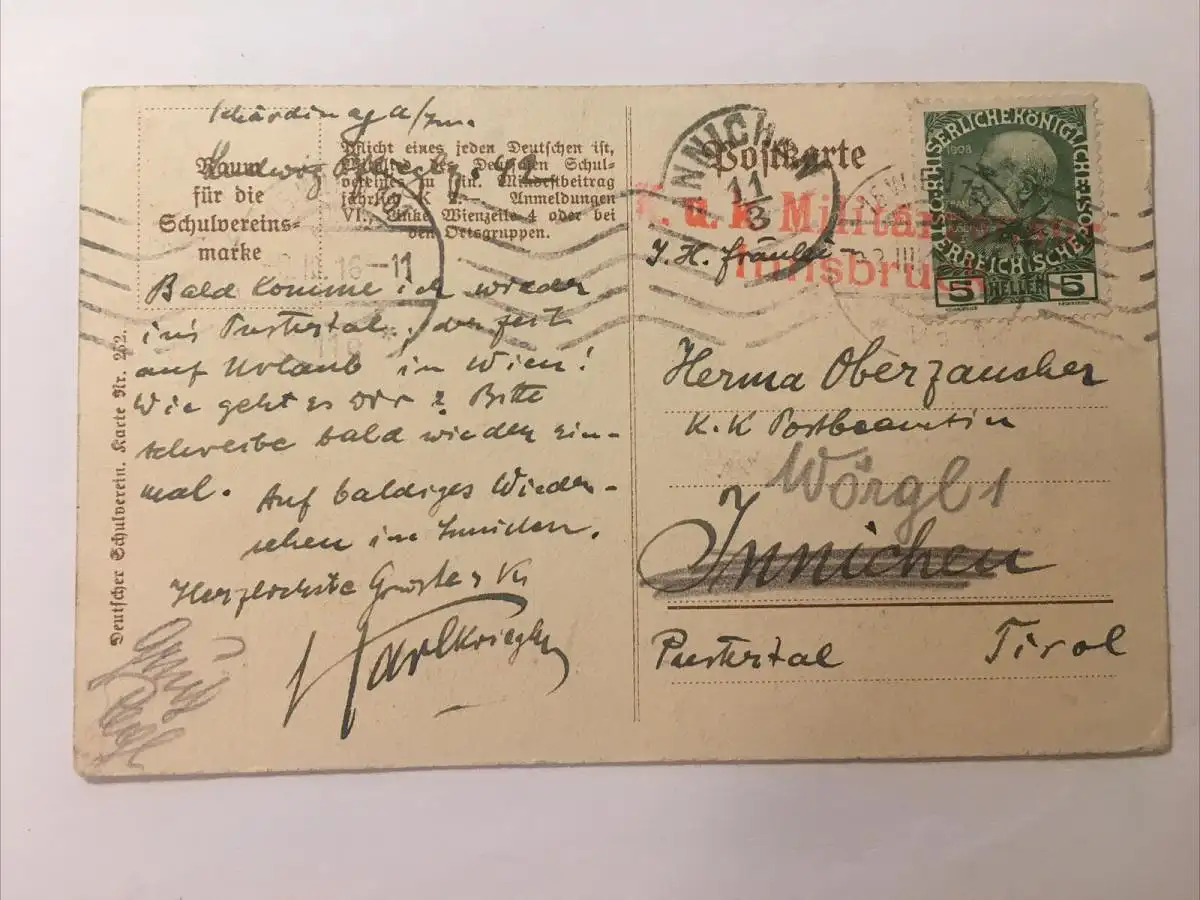 Schärding a/Inn.
Raum
für die
Schulvereins-
marke
Pflicht eines jeden Deutschen ist,
Mitglied des Deutschen Schul-
vereines zu sein. Mindestbeitrag
jährlich K 2.— Anmeldungen
VI., Linke Wienzeile 4 oder bei
den Ortsgruppen.
III. 16-11
118
Bald komme ich wieder
ins Pustertal, derzeit
auf Urlaub in Wien!
Wie geht es Dir? Bitte
schreibe bald wieder ein-
mal. Auf baldiges Wieder-
sehen in Innichen.
Herzlichste Grüße
Karl Kriegler
Deutscher Schulverein. Karte Nr. 262.
Postkarte
INNICHEN
11/3
K. u. k. Militärzensur
Innsbruck
KAISERLICHE KÖNIGLICHE
ÖSTERREICHISCHE POST
1908
5 HELLER 5
Fräulein
Herma Oberzaucher
K. K Postbeamtin
Wörgl 1
Innichen
Pustertal Tirol